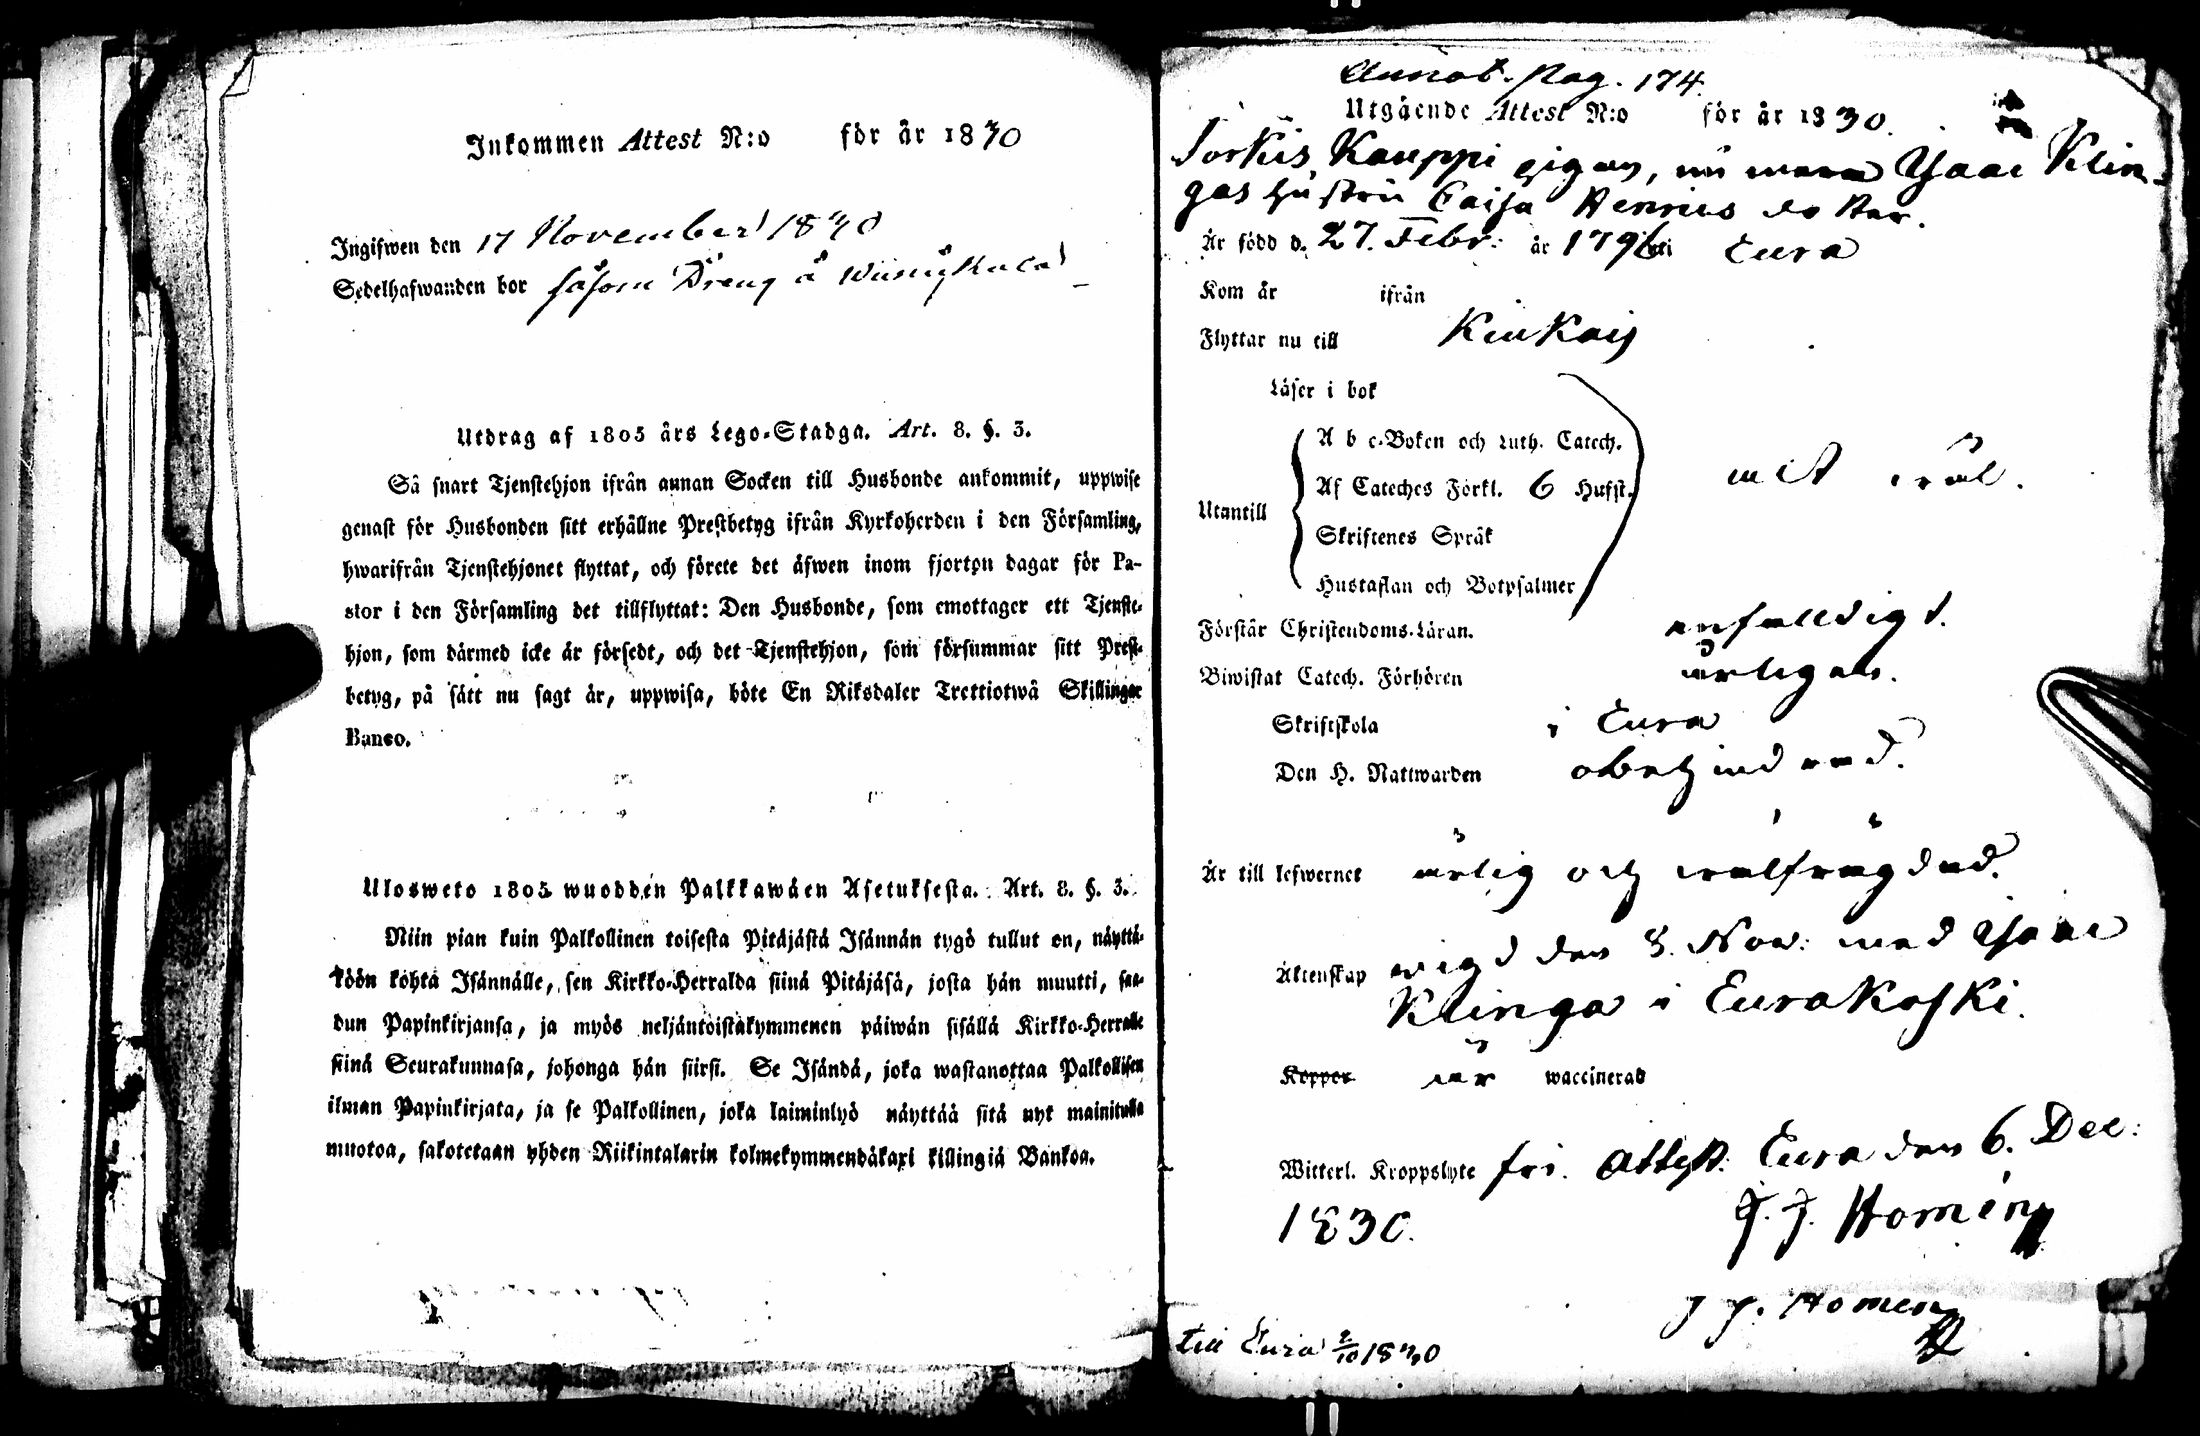 Inkommen Attest N:o för år 1830
Ingifwen den 17 November 1830
Sedelhafwanden bor såsom Dreng å
Utdrag af 1805 års Lego-Stadga. Art. 8. §. 3.
Så snart Tjenstehjon ifrån annan Socken till Husbonde ankommit, uppwise
genast för Husbonden sitt erhållne Prestbetyg ifrån Kyrkoherden i den Församling,
hwarifrån Tjenstehjonet flyttat, och förete det äfwen inom fjorton dagar för Pa-
stor i den Församling det tillflyttat: Den Husbonde, som emottager ett Tjenste-
hjon, som därmed icke är försedt, och det Tjenstehjon, som försummar sitt Prest-
betyg, på sått nu sagt är, uppwisa, böte En Riksdaler Trettiotwå Skillingar
Banco.
Ulosweto 1805 wuodden Palkkawäen Asetuksesta. Art. 8. §. 3.
Niin pian kuin Palkollinen toisesta Pitäjästä Isännän tygö tullut on, näyttä-
köön kohta Isännälle, sen Kirkko-Herralda siinä Pitäjäsä, josta hän muutti, saa-
dun Papinkirjansa, ja myös neljäntoistakymmenen päiwän sisällä Kirkko-Herralle
siinä Seurakunnasa, johonga hän siirsi. Se Isändä, joka wastanottaa Palkollisen
ilman Papinkirjata, ja se Palkollinen, joka laiminlyö näyttää sitä nyt mainitulla
muotoa, sakotetaan yhden Riikintalarin kolmekymmendäkaxi killingiä Bankoa.
Annot. pag. 174.
Utgående Attest N:o för år 1830.
Sorkis Kauppi pigan, nu mera Isaac Klin-
gas hustru Caisa Henrics dotter.
Är född d. 27. Febr: år 1796 i Eura
Kom år ifrån
Flyttar nu till Kiukais
Läser i bok
A b c-Boken och Luth. Catech.
Af Cateches Förkl. 6 Hufst.
Utantill
Skriftenes Språk
Hustaflan och Botpsalmer
wäl.
Förstår Christendoms-Läran. enfalldigt.
Biwistat Catech. Förhören årligen.
Skriftskola i Eura
Den H. Nattwarden obehindrad.
Är till lefwernet ärlig och wälfrägdad.
Äktenskap wigd den 8. Nov: med Isaac
Klinga i Eurakoski.
Koppor är waccinerad
Witterl. Kroppslyte fri. Attest. Eura den 6. Dec:
1830.
J. J. Homén
J J. Homén
till Eura 2/10 1830